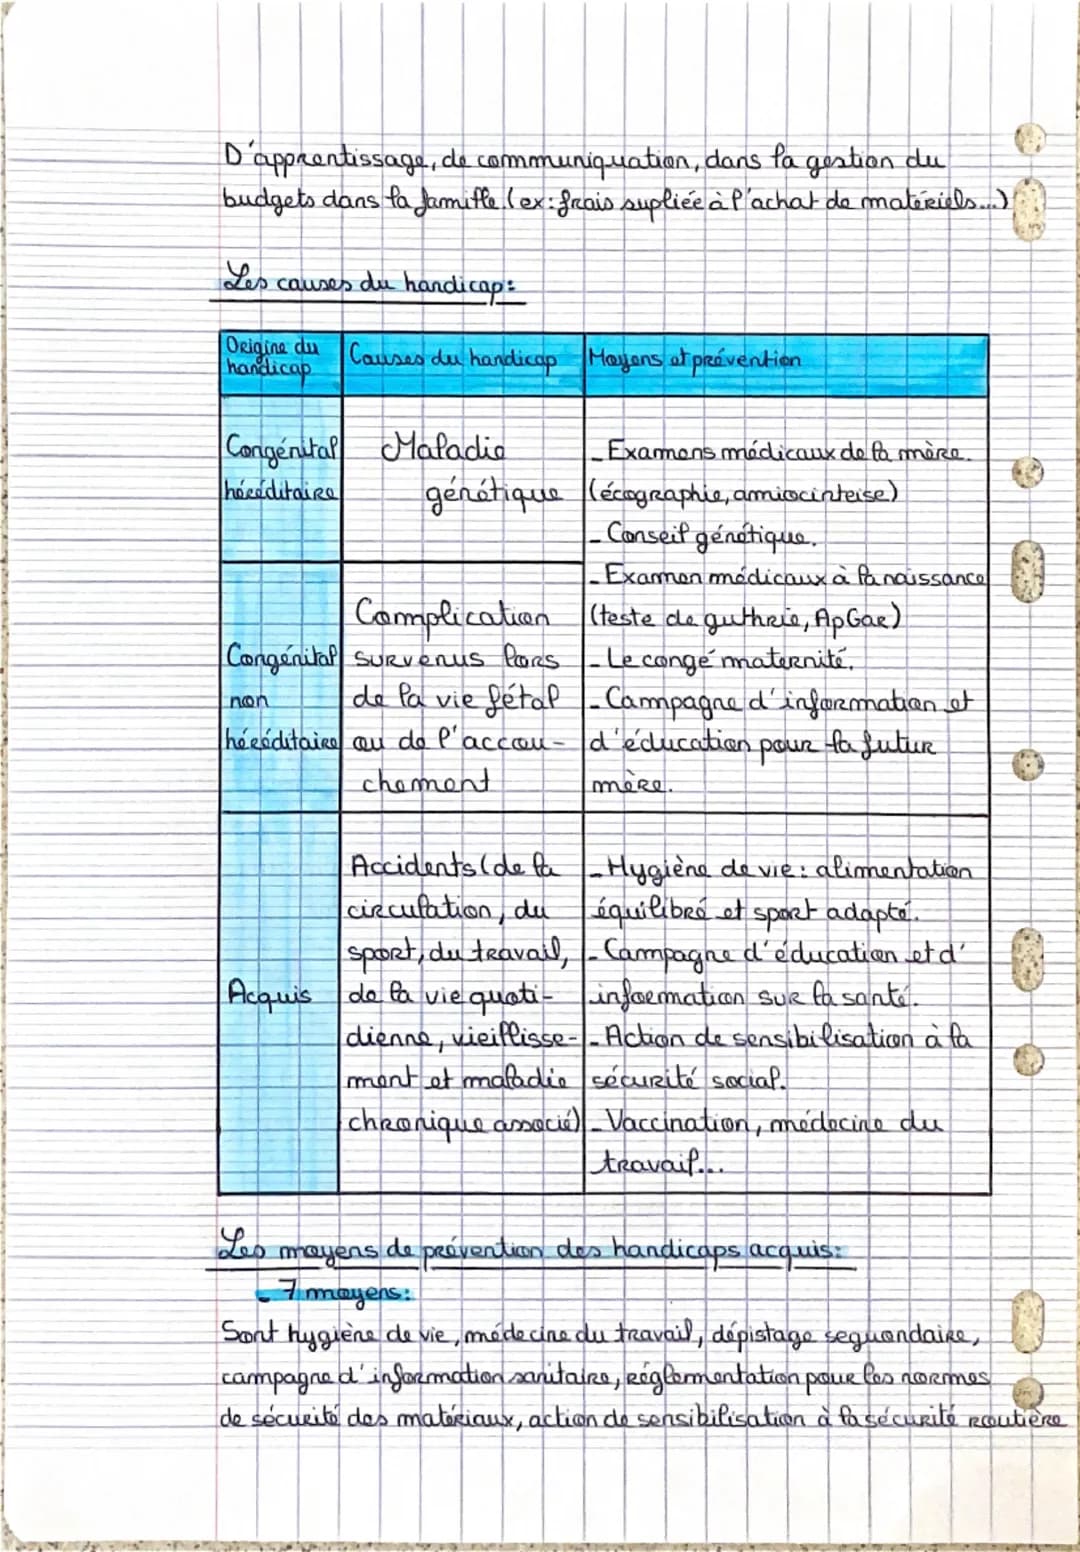 D'apprentissage, de communiquation, dans la gestion du
budgets dans la famille (ex: frais supliéé à l'achat de matériels...)
Les causes du handicap:
Origine du
handicap
Causes du handicap
Moyens et prévention
Congénital
héréditaire
Maladie
génétique
- Examens médicaux de la mère.
(écographie, amiocinteise)
- Conseil génétique.
- Examen médicaux à la naissance
(teste de guthrie, ApGar)
- Le congé maternité.
- Campagne d'information et
d'éducation pour la futur
mère.
Congénital
non
héréditaire
Complication
survenus lors
de la vie fétal
ou de l'accou-
chement
Acquis
Accidents (de la
circulation, du
sport, du travail,
de la vie quoti-
dienne, vieillisse-
ment et maladie
chronique associé)
- Hygiène de vie: alimentation
équilibré et sport adapté.
- Campagne d'éducation et d'
information sur la santé.
- Action de sensibilisation à la
sécurité social.
- Vaccination, médecine du
travail...
Les moyens de prévention des handicaps acquis:
- 7 moyens:
Sont hygiène de vie, médecine du travail, dépistage sequondaire,
campagne d'information sanitaire, réglementation pour les normes
de sécurité des matériaux, action de sensibilisation à la sécurité routière